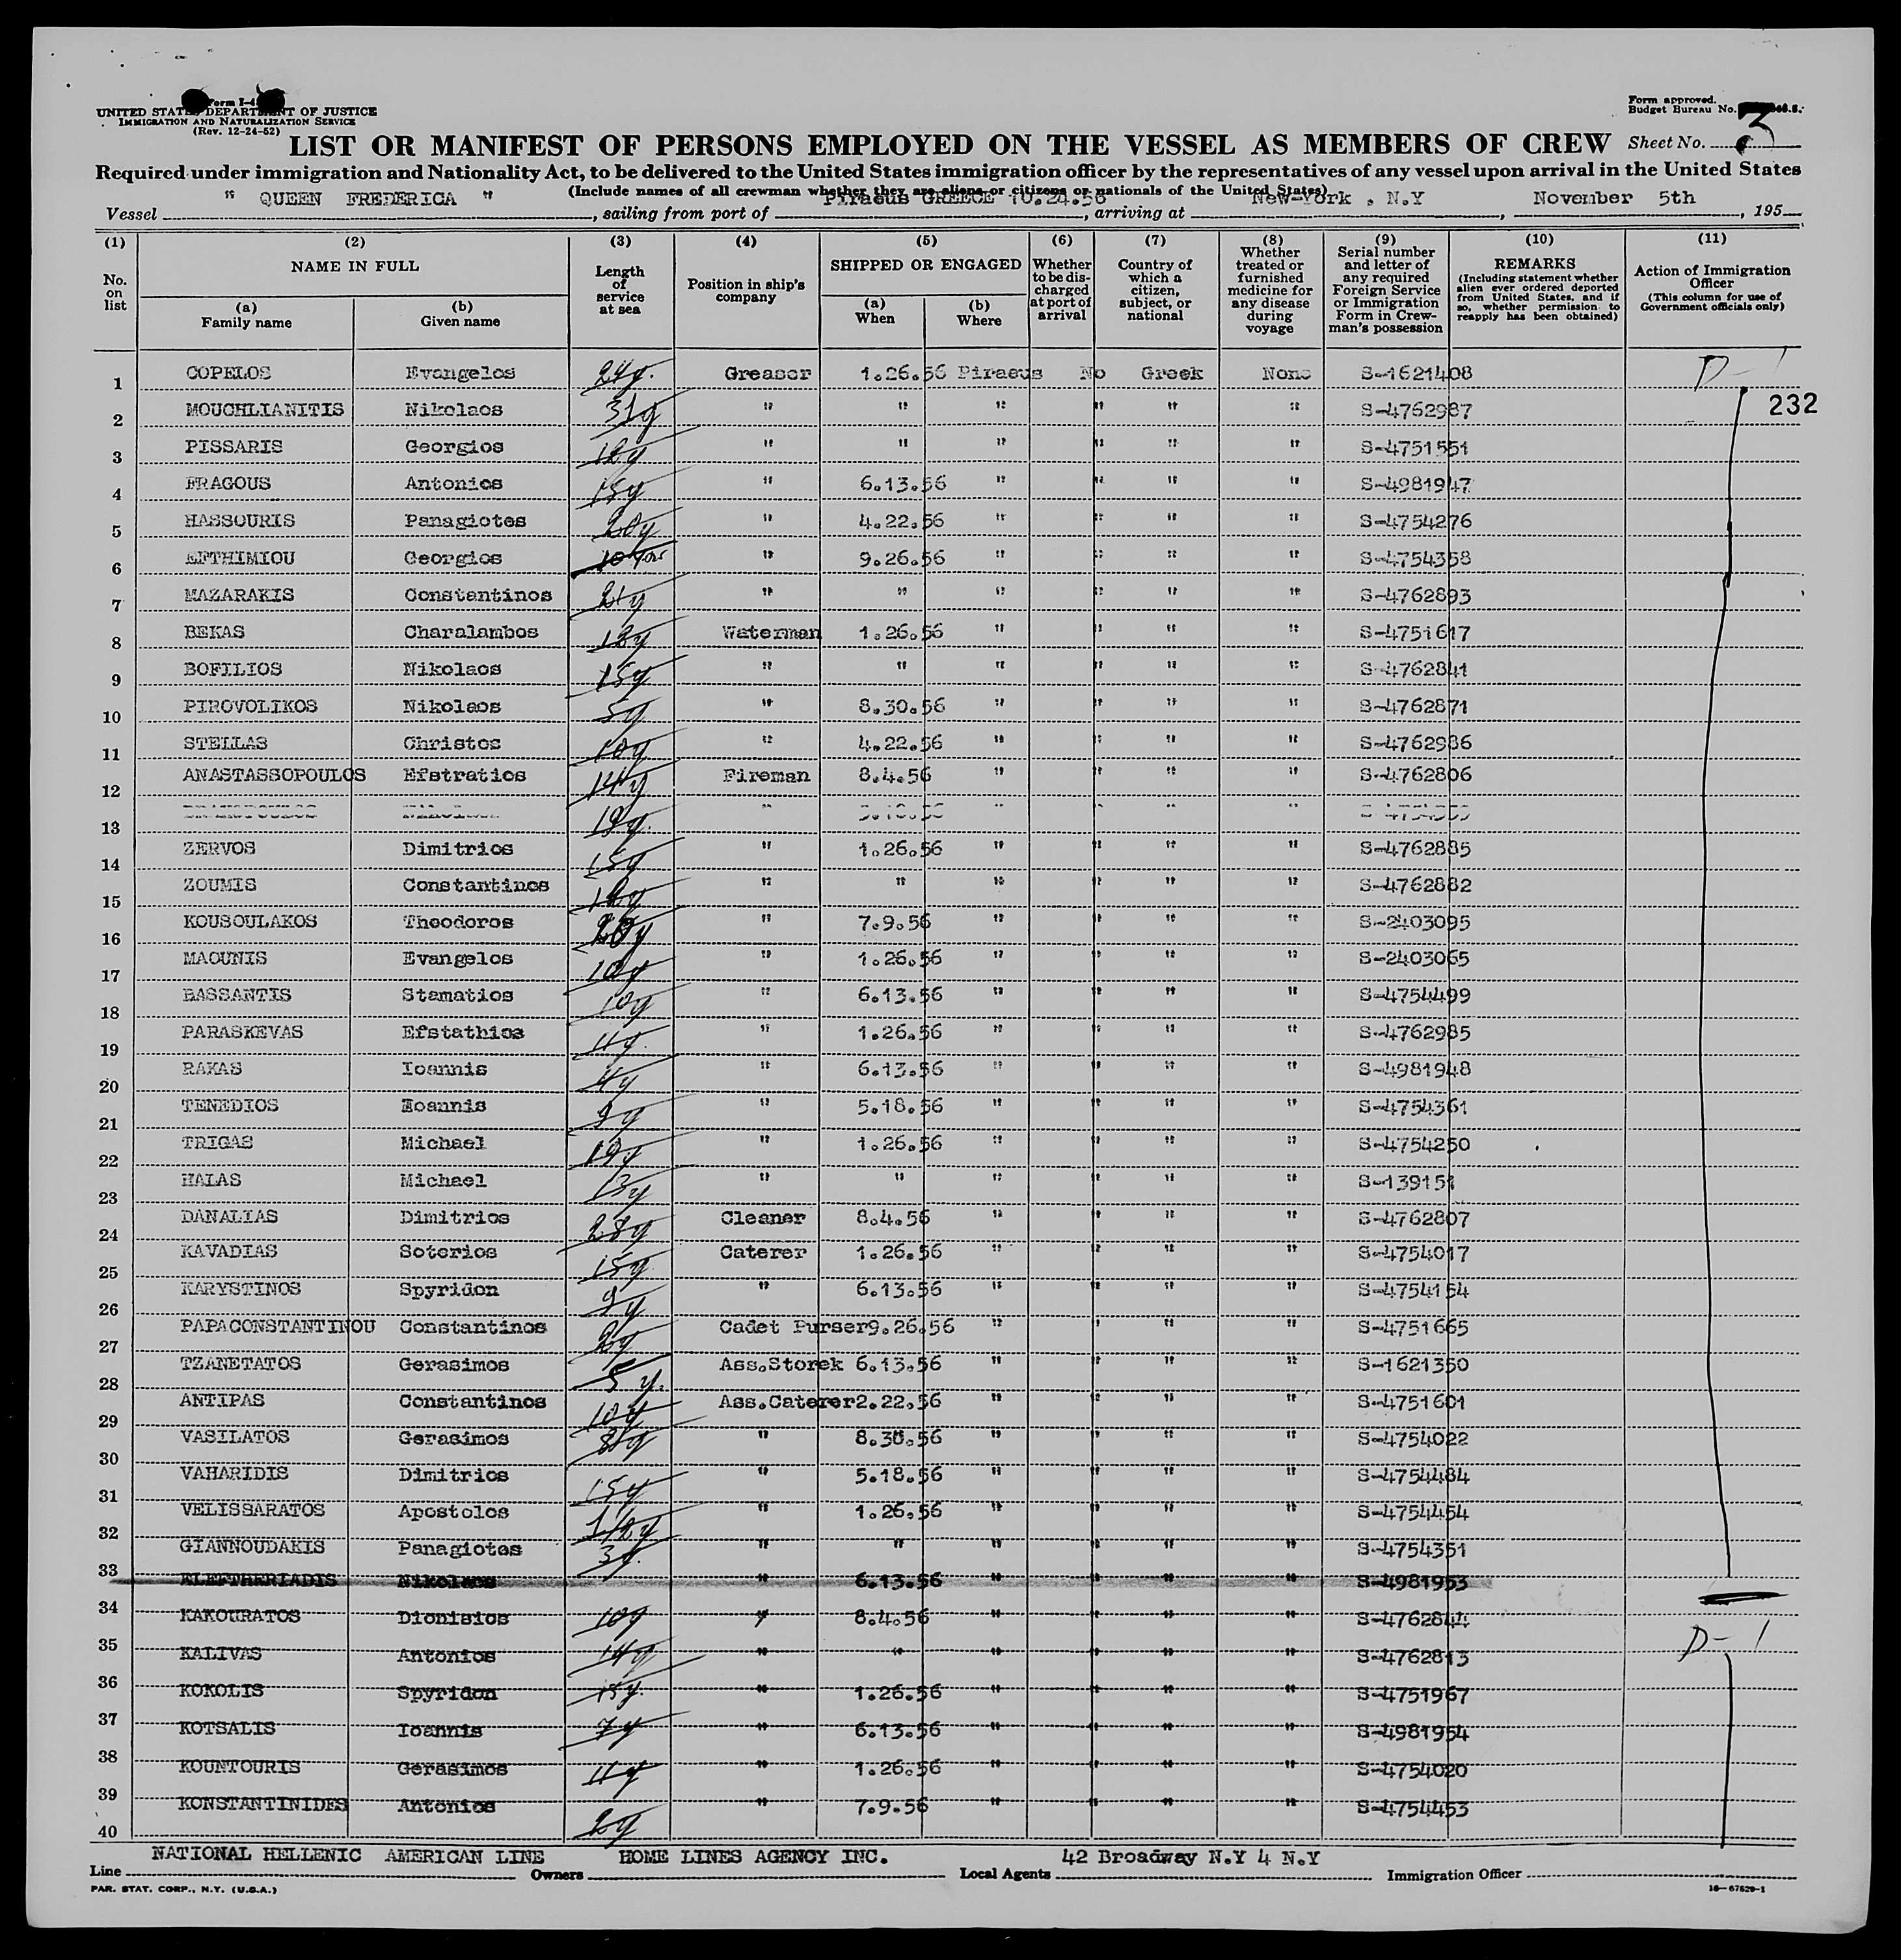 Form I-4
UNITED STATES DEPARTMENT OF JUSTICE
IMMIGRATION AND NATURALIZATION SERVICE
(Rev. 12-24-52)
Form approved.
Budget Bureau No.
LIST OR MANIFEST OF PERSONS EMPLOYED ON THE VESSEL AS MEMBERS OF CREW Sheet No. 3
Required under immigration and Nationality Act, to be delivered to the United States immigration officer by the representatives of any vessel upon arrival in the United States
(Include names of all crewman whether they are aliens or citizens or nationals of the United States)
Vessel " QUEEN FREDERICA ", sailing from port of Piraeus GREECE 10.24.56, arriving at New-York , N.Y, November 5th, 195
(1) (2) (3) (4) (5) (6) (7) (8) (9) (10) (11)
No. on list NAME IN FULL (a) Family name (b) Given name Length of service at sea Position in ship's company SHIPPED OR ENGAGED (a) When (b) Where Whether to be discharged at port of arrival Country of which a citizen, subject, or national Whether treated or furnished medicine for any disease during voyage Serial number and letter of any required Foreign Service or Immigration Form in Crewman's possession REMARKS (Including statement whether alien ever ordered deported from United States, and if so, whether permission to reapply has been obtained) Action of Immigration Officer (This column for use of Government officials only)
1 COPELOS Evangelos 24y. Greaser 1.26.56 Piraeus No Greek None S-1621408 D-1
2 MOUCHLIANITIS Nikolaos 31y " " " " " " S-4762987 232
3 PISSARIS Georgios 12y " " " " " " S-4751551
4 FRAGOUS Antonios 15y " 6.13.56 " " " " S-4981947
5 HASSOURIS Panagiotes 20y " 4.22.56 " " " " S-4754276
6 EFTHIMIOU Georgios " 9.26.56 " " " " S-4754358
7 MAZARAKIS Constantinos 21y " " " " " " S-4762893
8 BEKAS Charalambos 13y Waterman 1.26.56 " " " " S-4751617
9 BOFILIOS Nikolaos 15y " " " " " " S-4762841
10 PIROVOLIKOS Nikolaos 5y " 8.30.56 " " " " S-4762871
11 STELLAS Christos 10y " 4.22.56 " " " " S-4762986
12 ANASTASSOPOULOS Efstratios 14y Fireman 8.4.56 " " " " S-4762806
13 19y. " " " " "
14 ZERVOS Dimitrios 15y " 1.26.56 " " " " S-4762885
15 ZOUMIS Constantinos 12y " " " " " " S-4762882
16 KOUSOULAKOS Theodoros " 7.9.56 " " " " S-2403095
17 MAOUNIS Evangelos 10y " 1.26.56 " " " " S-2403065
18 BASSANTIS Stamatios 10y " 6.13.56 " " " " S-4754499
19 PARASKEVAS Efstathios 11y. " 1.26.56 " " " " S-4762985
20 RAKAS Ioannis 4y " 6.13.56 " " " " S-4981948
21 TENEDIOS Ioannis 9y " 5.18.56 " " " " S-4754361
22 TRIGAS Michael 19y " 1.26.56 " " " " S-4754250
23 HALAS Michael 13y " " " " " " S-139151
24 DANALIAS Dimitrios 28y Cleaner 8.4.56 " " " " S-4762807
25 KAVADIAS Soterios 15y Caterer 1.26.56 " " " " S-4754017
26 KARYSTINOS Spyridon 9y " 6.13.56 " " " " S-4754154
27 PAPACONSTANTINOU Constantinos 2y Cadet Purser 9.26.56 " " " " S-4751665
28 TZANETATOS Gerasimos 5 y. Ass.Storek 6.13.56 " " " " S-1621350
29 ANTIPAS Constantinos 10y Ass.Caterer 2.22.56 " " " " S-4751601
30 VASILATOS Gerasimos 8y " 8.30.56 " " " " S-4754022
31 VAHARIDIS Dimitrios 15y " 5.18.56 " " " " S-4754484
32 VELISSARATOS Apostolos 1/2y " 1.26.56 " " " " S-4754454
33 GIANNOUDAKIS Panagiotes 3y. " " " " " " S-4754351
34 ELEFTHERIADIS Nikolaos " 6.13.56 " " " " S-4981953
35 KAKOURATOS Dionisios 10y " 8.4.56 " " " " S-4762844 D-1
36 KALIVAS Antonios 14y " " " " " " S-4762813
37 KOKOLIS Spyridon 15y. " 1.26.56 " " " " S-4751967
38 KOTSALIS Ioannis 7y " 6.13.56 " " " " S-4981954
39 KOUNTOURIS Gerasimos 11y " 1.26.56 " " " " S-4754020
40 KONSTANTINIDES Antonios 2y " 7.9.56 " " " " S-4754453
Line NATIONAL HELLENIC AMERICAN LINE Owners HOME LINES AGENCY INC. Local Agents 42 Broadway N.Y 4 N.Y Immigration Officer
PAR. STAT. CORP., N.Y. (U.S.A.)
16-67529-1